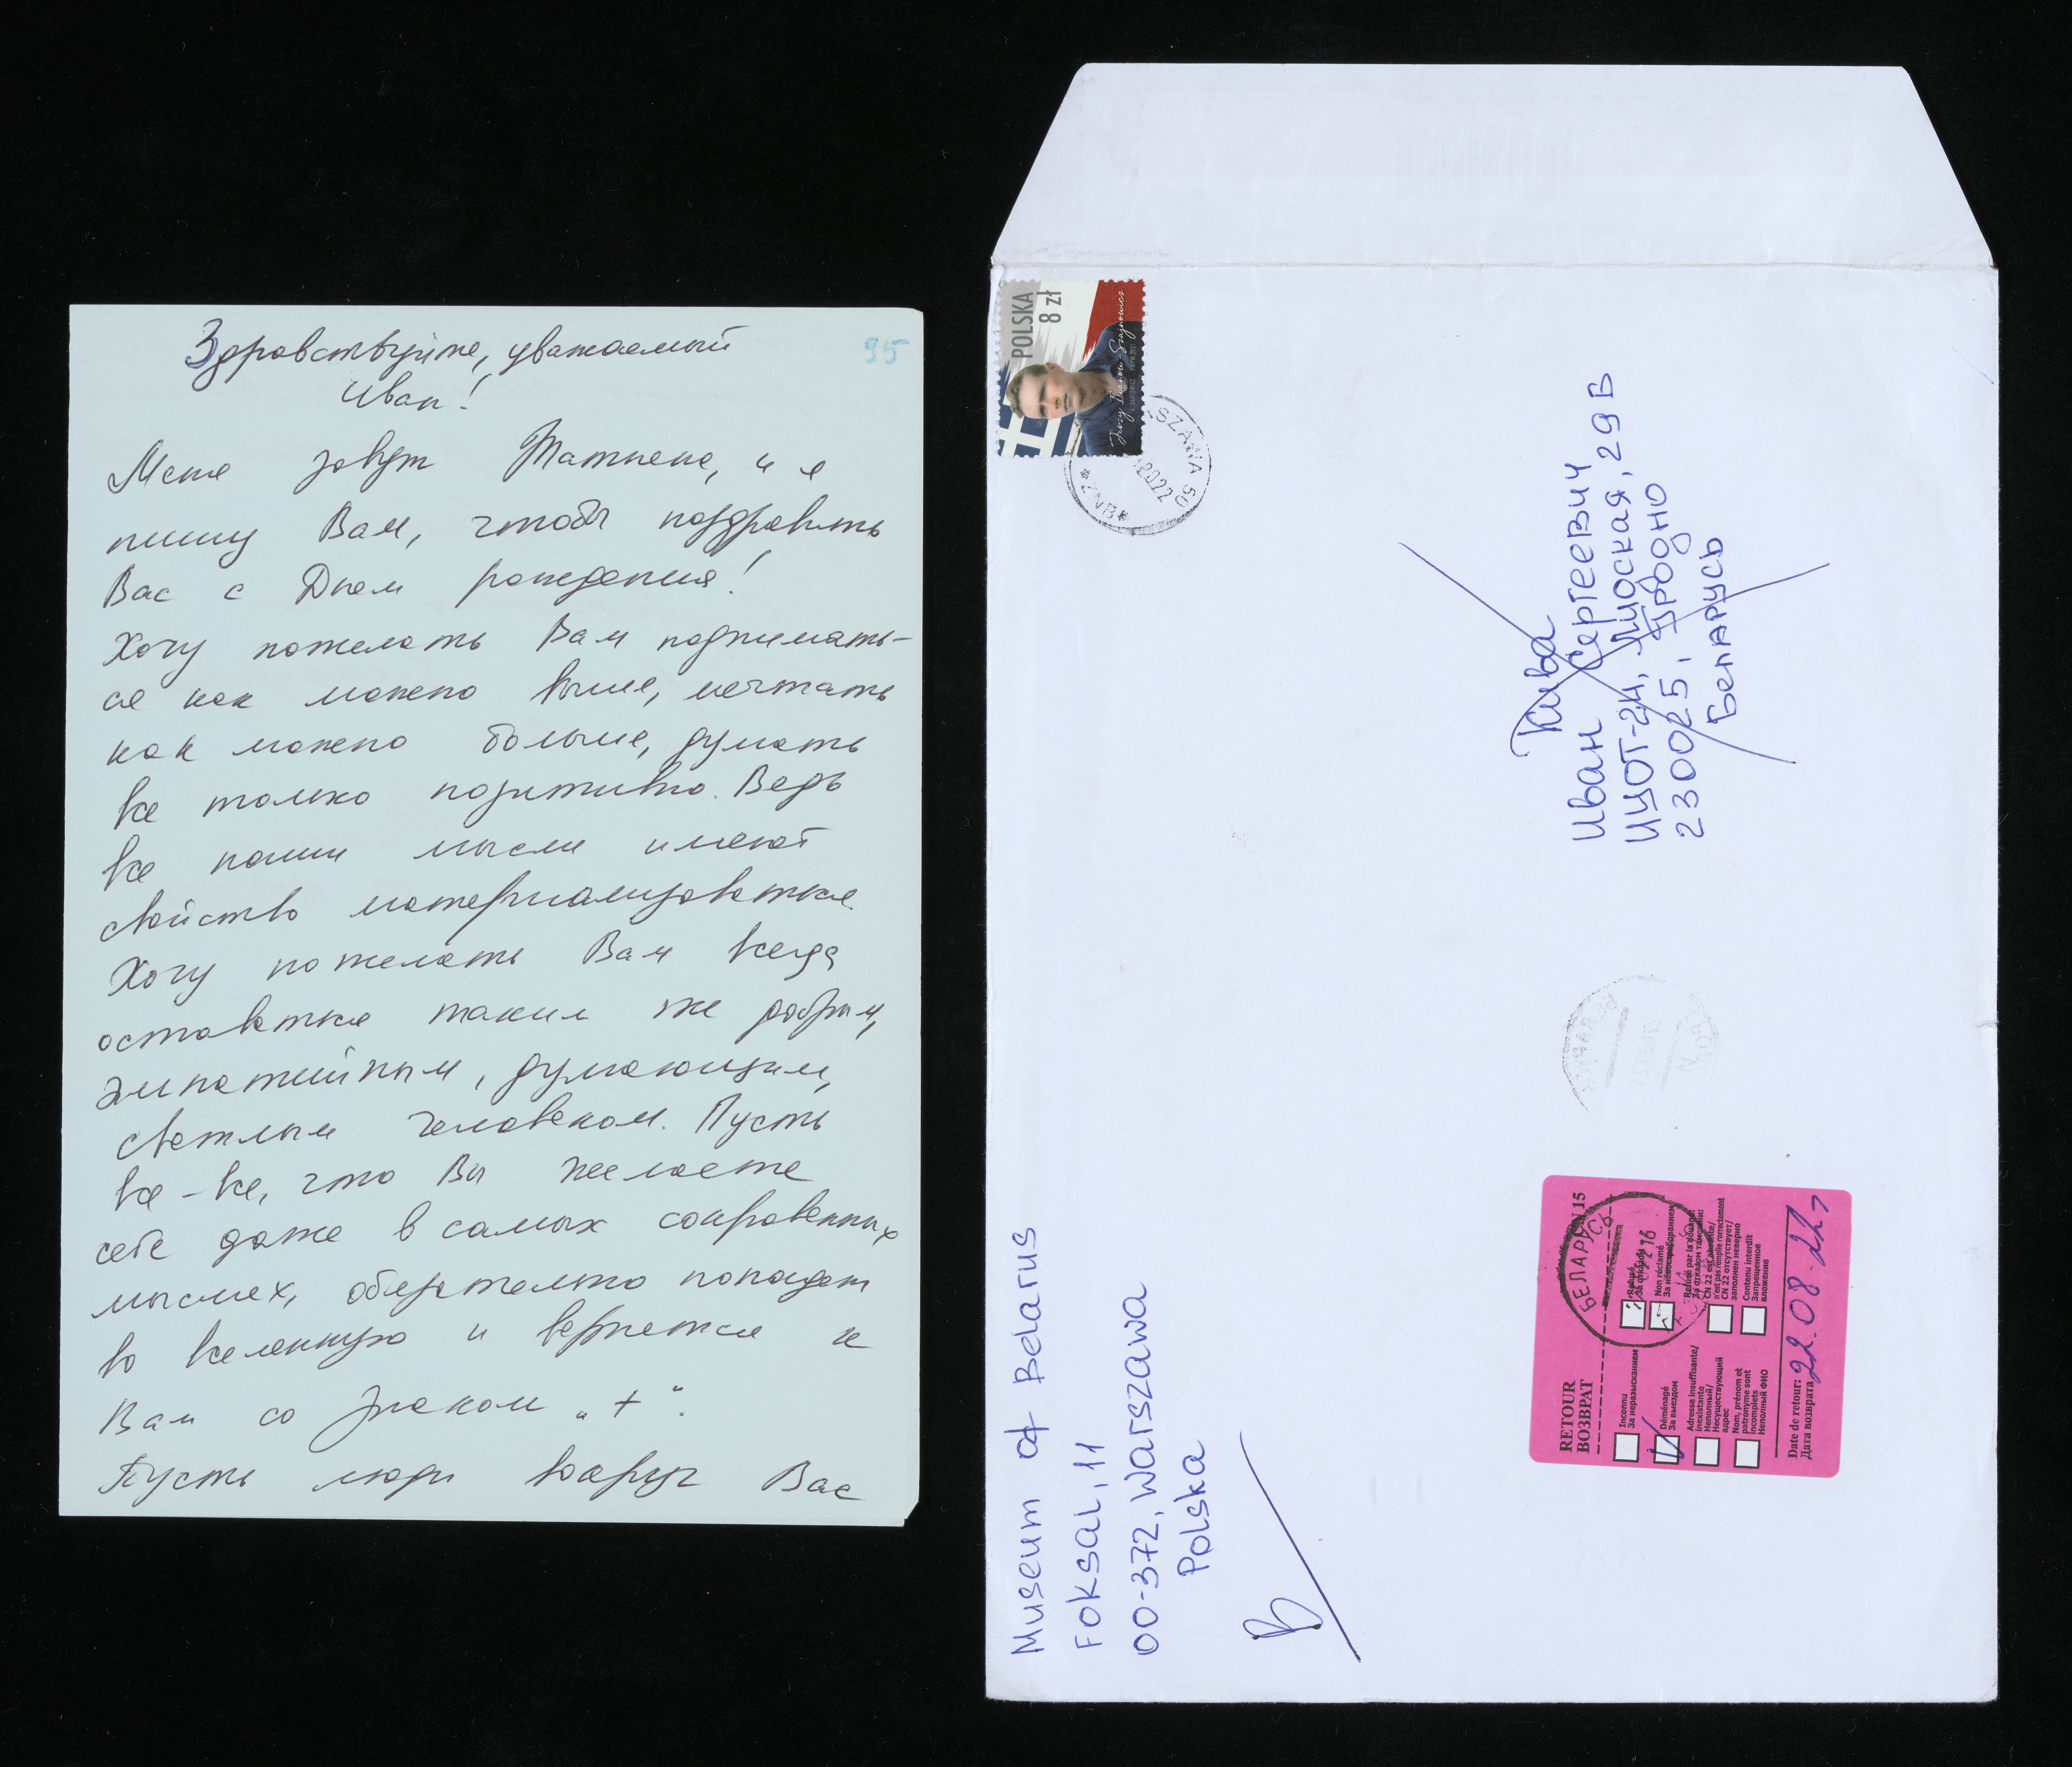 95
Здравствуйте, уважаемый
Иван!
Меня зовут Татьяна, и я
пишу Вам, чтобы поздравить
Вас с Днем рождения!
Хочу пожелать Вам поднимать-
ся как можно выше, мечтать
как можно больше, думать
все только позитивно. Ведь
все наши мысли имеют
свойство материализоваться.
Хочу пожелать Вам всегда
оставаться таким же добрым,
эмпатийным, думающим,
светлым человеком. Пусть
все-все, что Вы желаете
себе даже в самых сокровенных
мыслях, обязательно попадет
во вселенную и вернется к
Вам со знаком „+“.
Пусть люди вокруг Вас
POLSKA
8 zł
SZAWA 50
2022
ZNB
Museum of Belarus
Foksal, 11
00-372, Warszawa
Polska
В
Иван Сергеевич
ИУОТ-24, 29 Б
230025, Гродно
Беларусь
RETOUR
ВОЗВРАТ
CN 15
БЕЛАРУСЬ
Inconnu
За неразысканием
Refusé
Déménagé
За выездом
Non réclamé
Adresse insuffisante/
inexistante
Неполный/
Несуществующий
адрес
CN 22 отсутствует/
заполнен неверно
Nom, prénom et
patronyme sont
incomplets
Неполный ФИО
Contenu interdit
Запрещенное
вложение
Date de retour:
Дата возврата
22.08.22